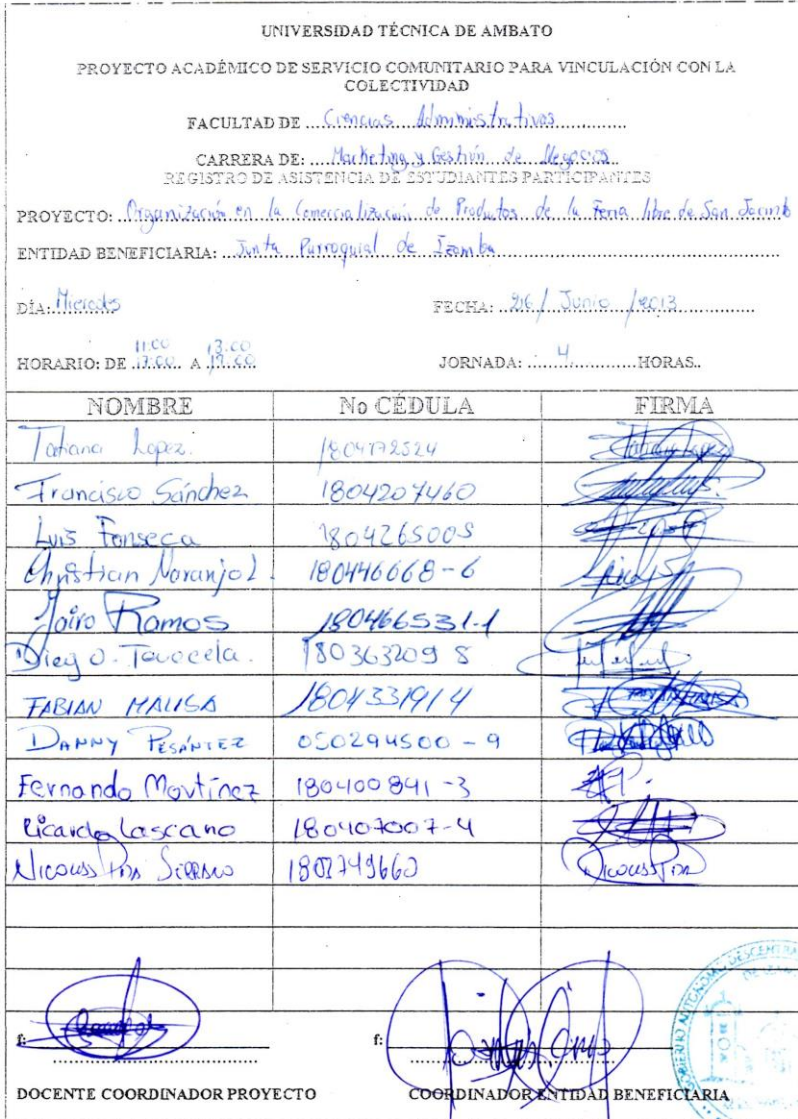 UNIVERSIDAD TÉCNICA DE AMBATO
PROYECTO ACADÉMICO DE SERVICIO COMUNITARIO PARA VINCULACIÓN CON LA
COLECTIVIDAD
FACULTAD DE Ciencias Administrativas
CARRERA DE: Marketing y Gestión de Negocios
REGISTRO DE ASISTENCIA DE ESTUDIANTES PARTICIPANTES
PROYECTO: Organización en la Comercialización de Productos de la Feria libre de San Jacinto
ENTIDAD BENEFICIARIA: Junta Parroquial de Izamba
DÍA: Miercoles FECHA: 26 / Junio / 2013
11:00 13:00
HORARIO: DE 17:00 A 19:00 JORNADA: 4 HORAS..
NOMBRE No CÉDULA FIRMA
Tatiana Lopez. 1804172524 Tatiana Lopez
Francisco Sánchez 1804207460
Luis Fonseca 1804265005
Christian Naranjo L. 180446668-6
Jairo Ramos 180466531-1
Diego 180363209 8
FABIAN MALISA 1804331914
DANNY PESÁNTEZ 050294500-9
Fernando Martínez 180400841-3
Ricardo Lascano 180407007-4
1802749660
f: f:
DOCENTE COORDINADOR PROYECTO COORDINADOR ENTIDAD BENEFICIARIA